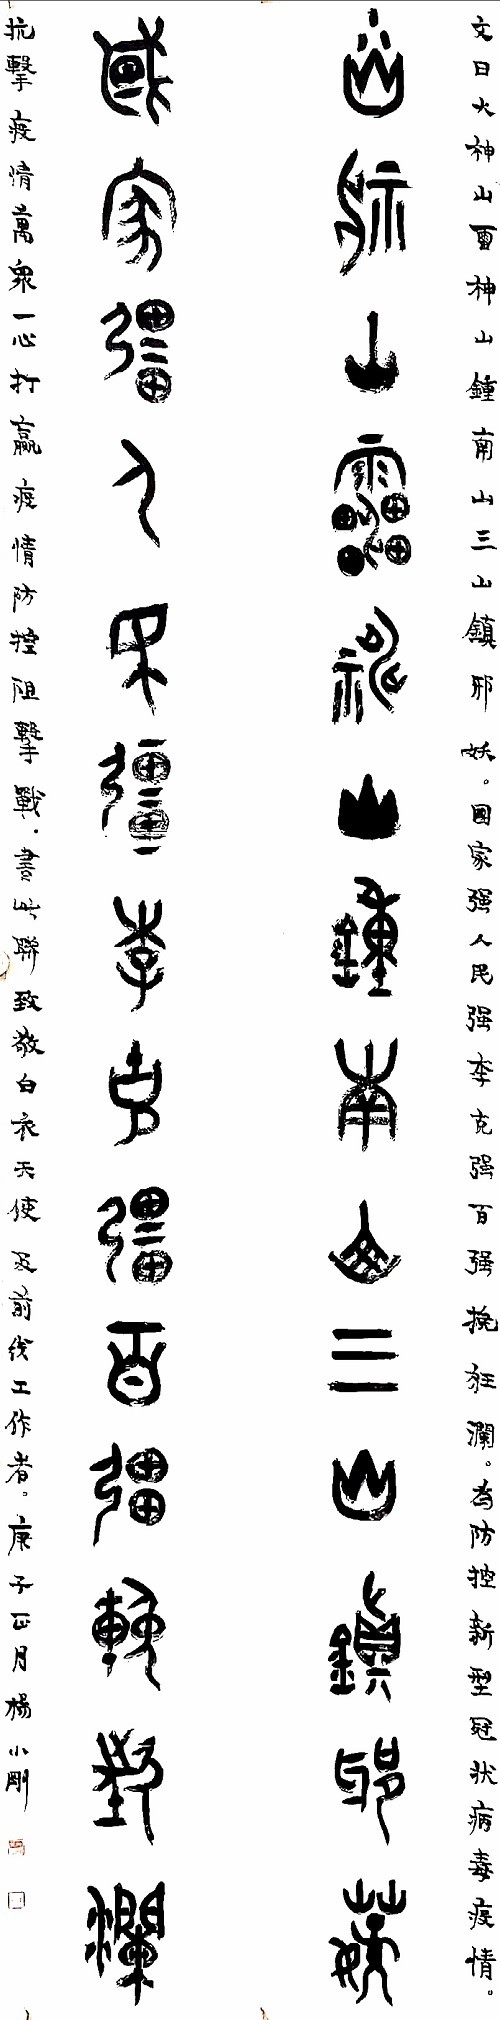 文曰火神山雷神山鍾南山三山鎮邪妖。国家强人民强李克强百强挽狂瀾。為防控新型冠状病毒疫情。
火神山靁神山鍾南山三山鎮邪妖
國家彊人民彊李克彊百彊輓狂瀾
抗擊疫情萬衆一心打贏疫情防控阻擊戰。書此聯致敬白衣天使及前线工作者。庚子正月楊小剛